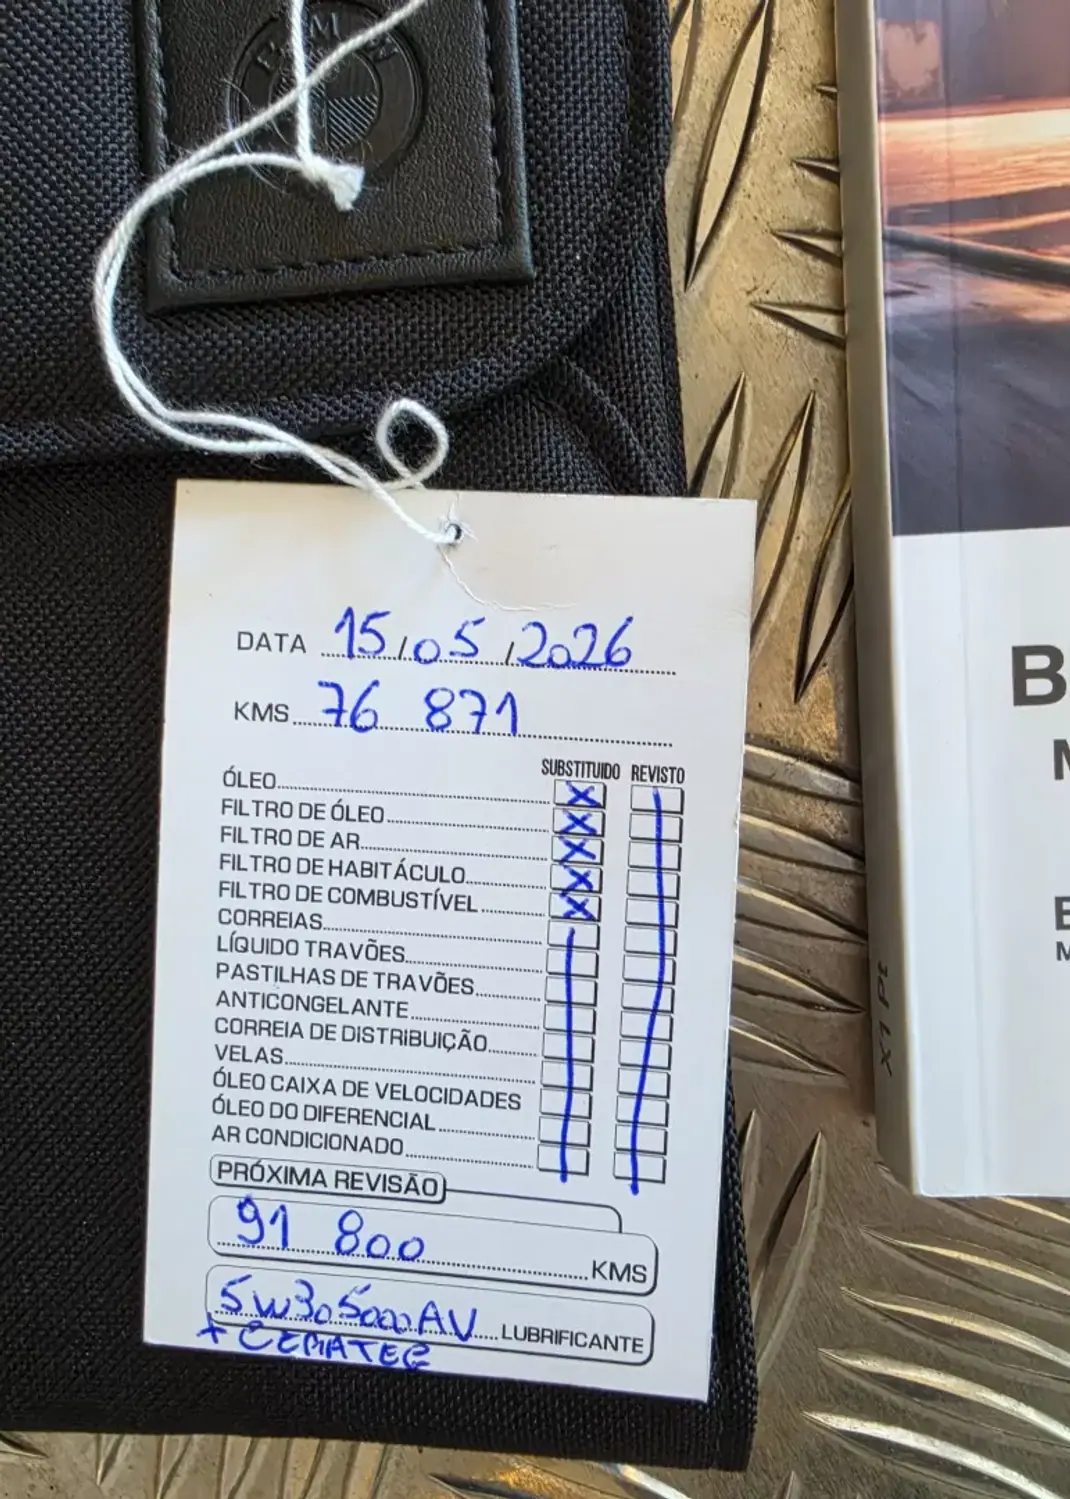 BMW
DATA 15/05/2026
KMS 76 871
SUBSTITUIDO REVISTO
ÓLEO X
FILTRO DE ÓLEO X
FILTRO DE AR X
FILTRO DE HABITÁCULO X
FILTRO DE COMBUSTÍVEL X
CORREIAS
LÍQUIDO TRAVÕES
PASTILHAS DE TRAVÕES
ANTICONGELANTE
CORREIA DE DISTRIBUIÇÃO
VELAS
ÓLEO CAIXA DE VELOCIDADES
ÓLEO DO DIFERENCIAL
AR CONDICIONADO
PRÓXIMA REVISÃO
91 800 KMS
5W30 5000AV LUBRIFICANTE
X1 Pt
B